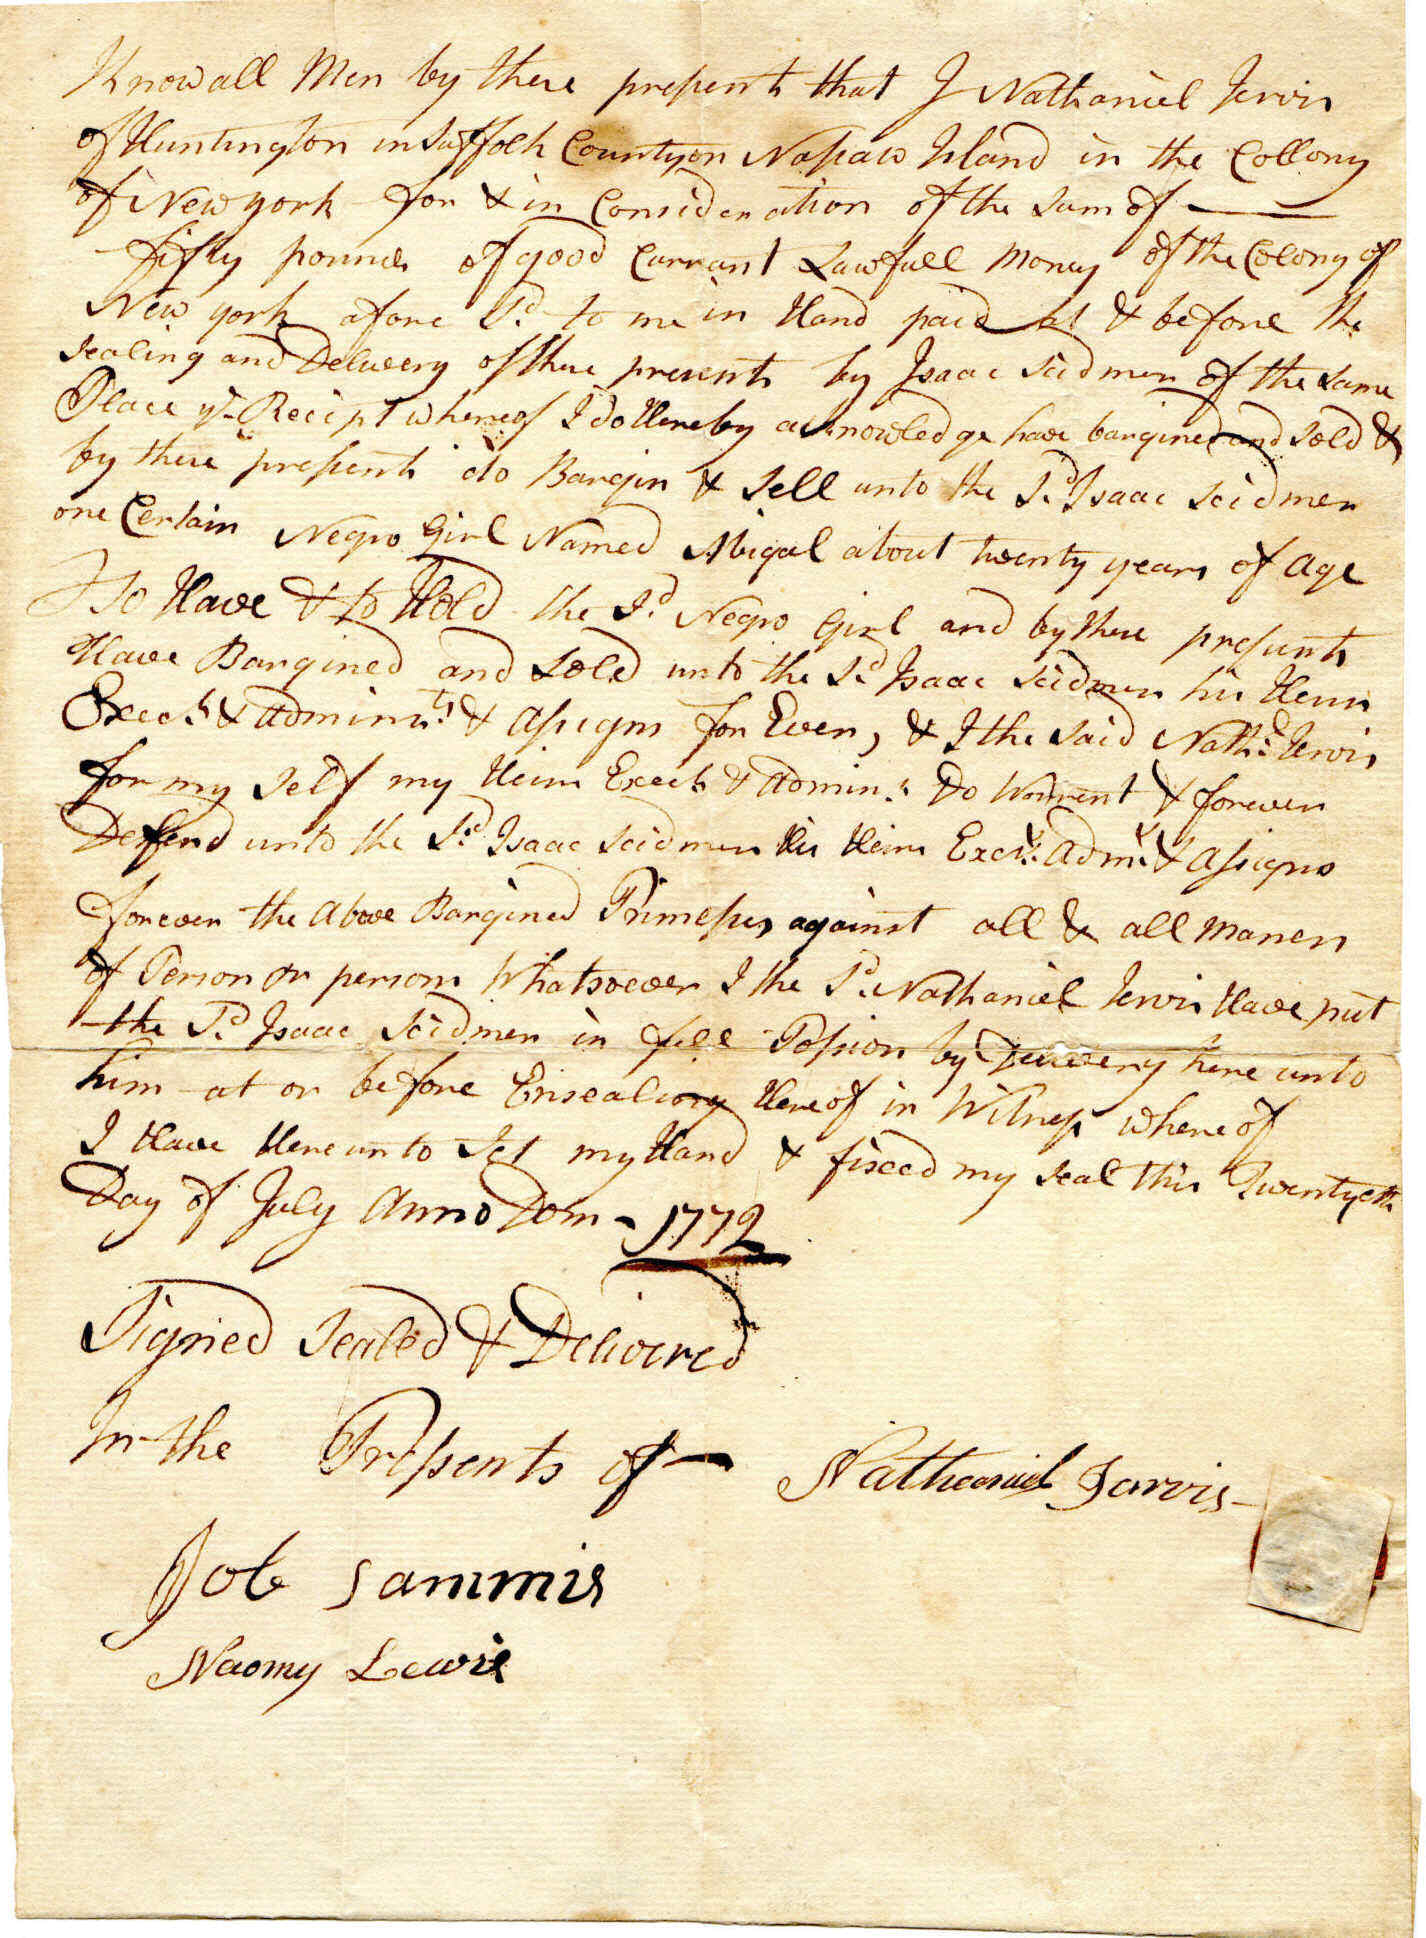 Know all Men by these presents that I Nathaniel Jervis
of Huntington in Suffolk County on Nasaw Island in the Collony
of New york for & in Consideration of the Sum of
fifty pounds of good Currant Lawfull Money of the Colony of
New york afore Sd. to me in Hand paid at & before the
Sealing and Delivery of these presents by Isaac Scidmer of the Same
Place ye Recipt whereof I do Hereby acknowledge have bargined and Sold &
by these presents do Bargin & Sell unto the Sd. Isaac Scidmer
one Certain Negro Girl Named Abigal about twenty years of age
To Have & to Hold the Sd. Negro Girl and by these presents
Have Bargined and Sold unto the Sd. Isaac Scidmer his Heirs
Execrs & Adminrs & Assigns for Ever, & I the Said Nathd. Jervis
for my Self my Heirs Execrs & Adminrs Do Warrent & forever
Deffend unto the Sd. Isaac Scidmer His Heirs Execrs. Admrs. & Assigns
forever the Above Bargined Primeses against all & all Maners
of Person or persons Whatsoever I the Sd. Nathaniel Jervis Have put
the Sd. Isaac Scidmer in full Possion by Delivery here unto
him at or before Ensealing Hereof in Witness where of
I Have Here unto Set my Hand & fixed my Seal this Twentyeth
Day of July Anno Dom - 1772
Signed Sealed & Delivered
In the Presents of
Nathaniel Jarvis
Job Sammis
Naomy Lewis